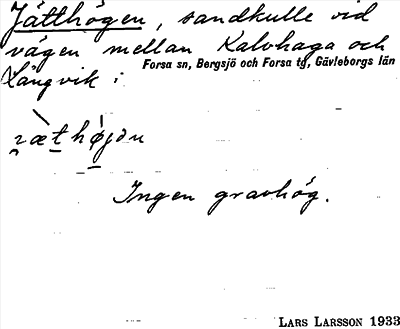 Jätthögen, sandkulle vid
vägen mellan Kalvhaga och
Långvik i
Forsa sn, Bergsjö och Forsa tg, Gävleborgs län
Ingen gravhög.
LARS LARSSON 1933